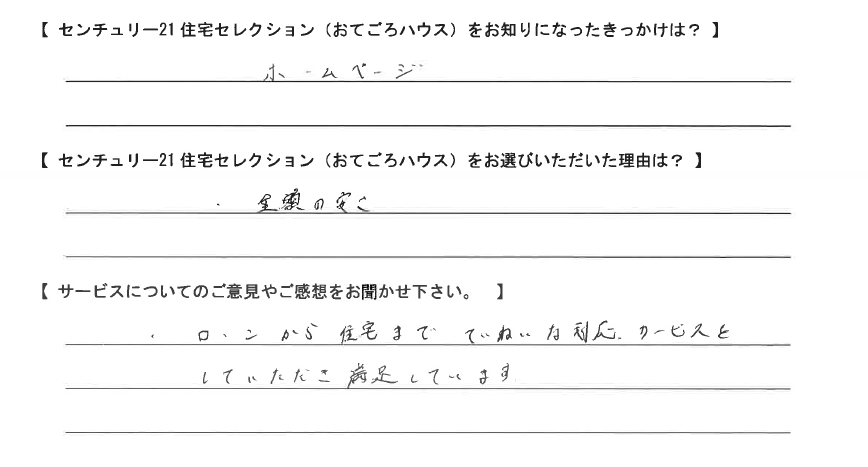 【 センチュリー21 住宅セレクション（おてごろハウス）をお知りになったきっかけは？ 】
ホームページ
【 センチュリー21 住宅セレクション（おてごろハウス）をお選びいただいた理由は？ 】
・ 金額の安さ
【 サービスについてのご意見やご感想をお聞かせ下さい。 】
・ ローンから住宅まで ていねいな対応、サービスを
していただき 満足しています